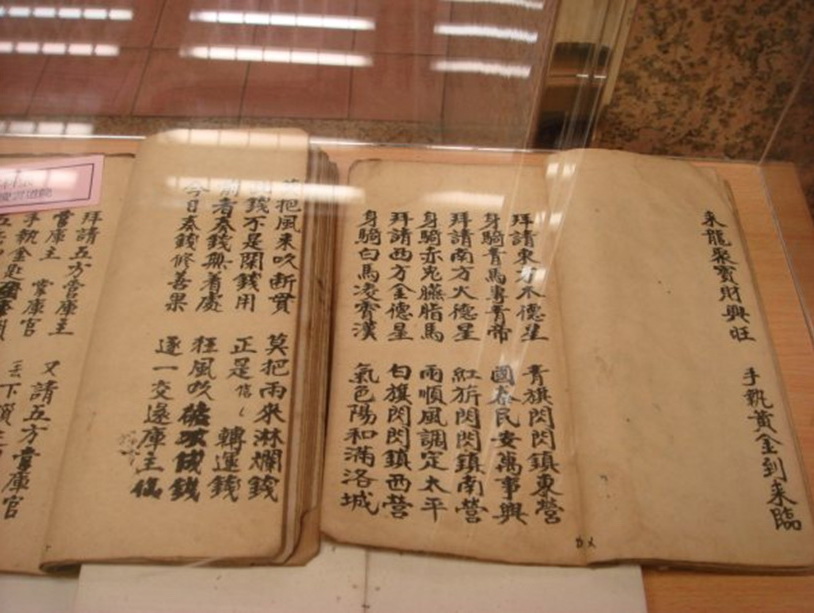 來龍聚寶財興旺 手執黃金到來臨
拜請東方木德星 青旗閃閃鎮東營
身騎青馬青帝 國泰民安萬事興
拜請南方火德星 紅旂閃閃鎮南營
身騎赤兔臙脂馬 雨順風調定太平
拜請西方金德星 白旗閃閃鎮西營
身騎白馬凌霄漢 氣色陽和滿洛城
莫把風來吹斷貫 莫把雨來淋爛錢
錢不是閑錢用 正是信轉運錢
者奏錢無着處 狂風吹錢
今日奏錢修善果 逐一交還庫主
拜請五方當庫主 又請五方當庫官
當庫主 當庫官
手執金匙 丟下鎖